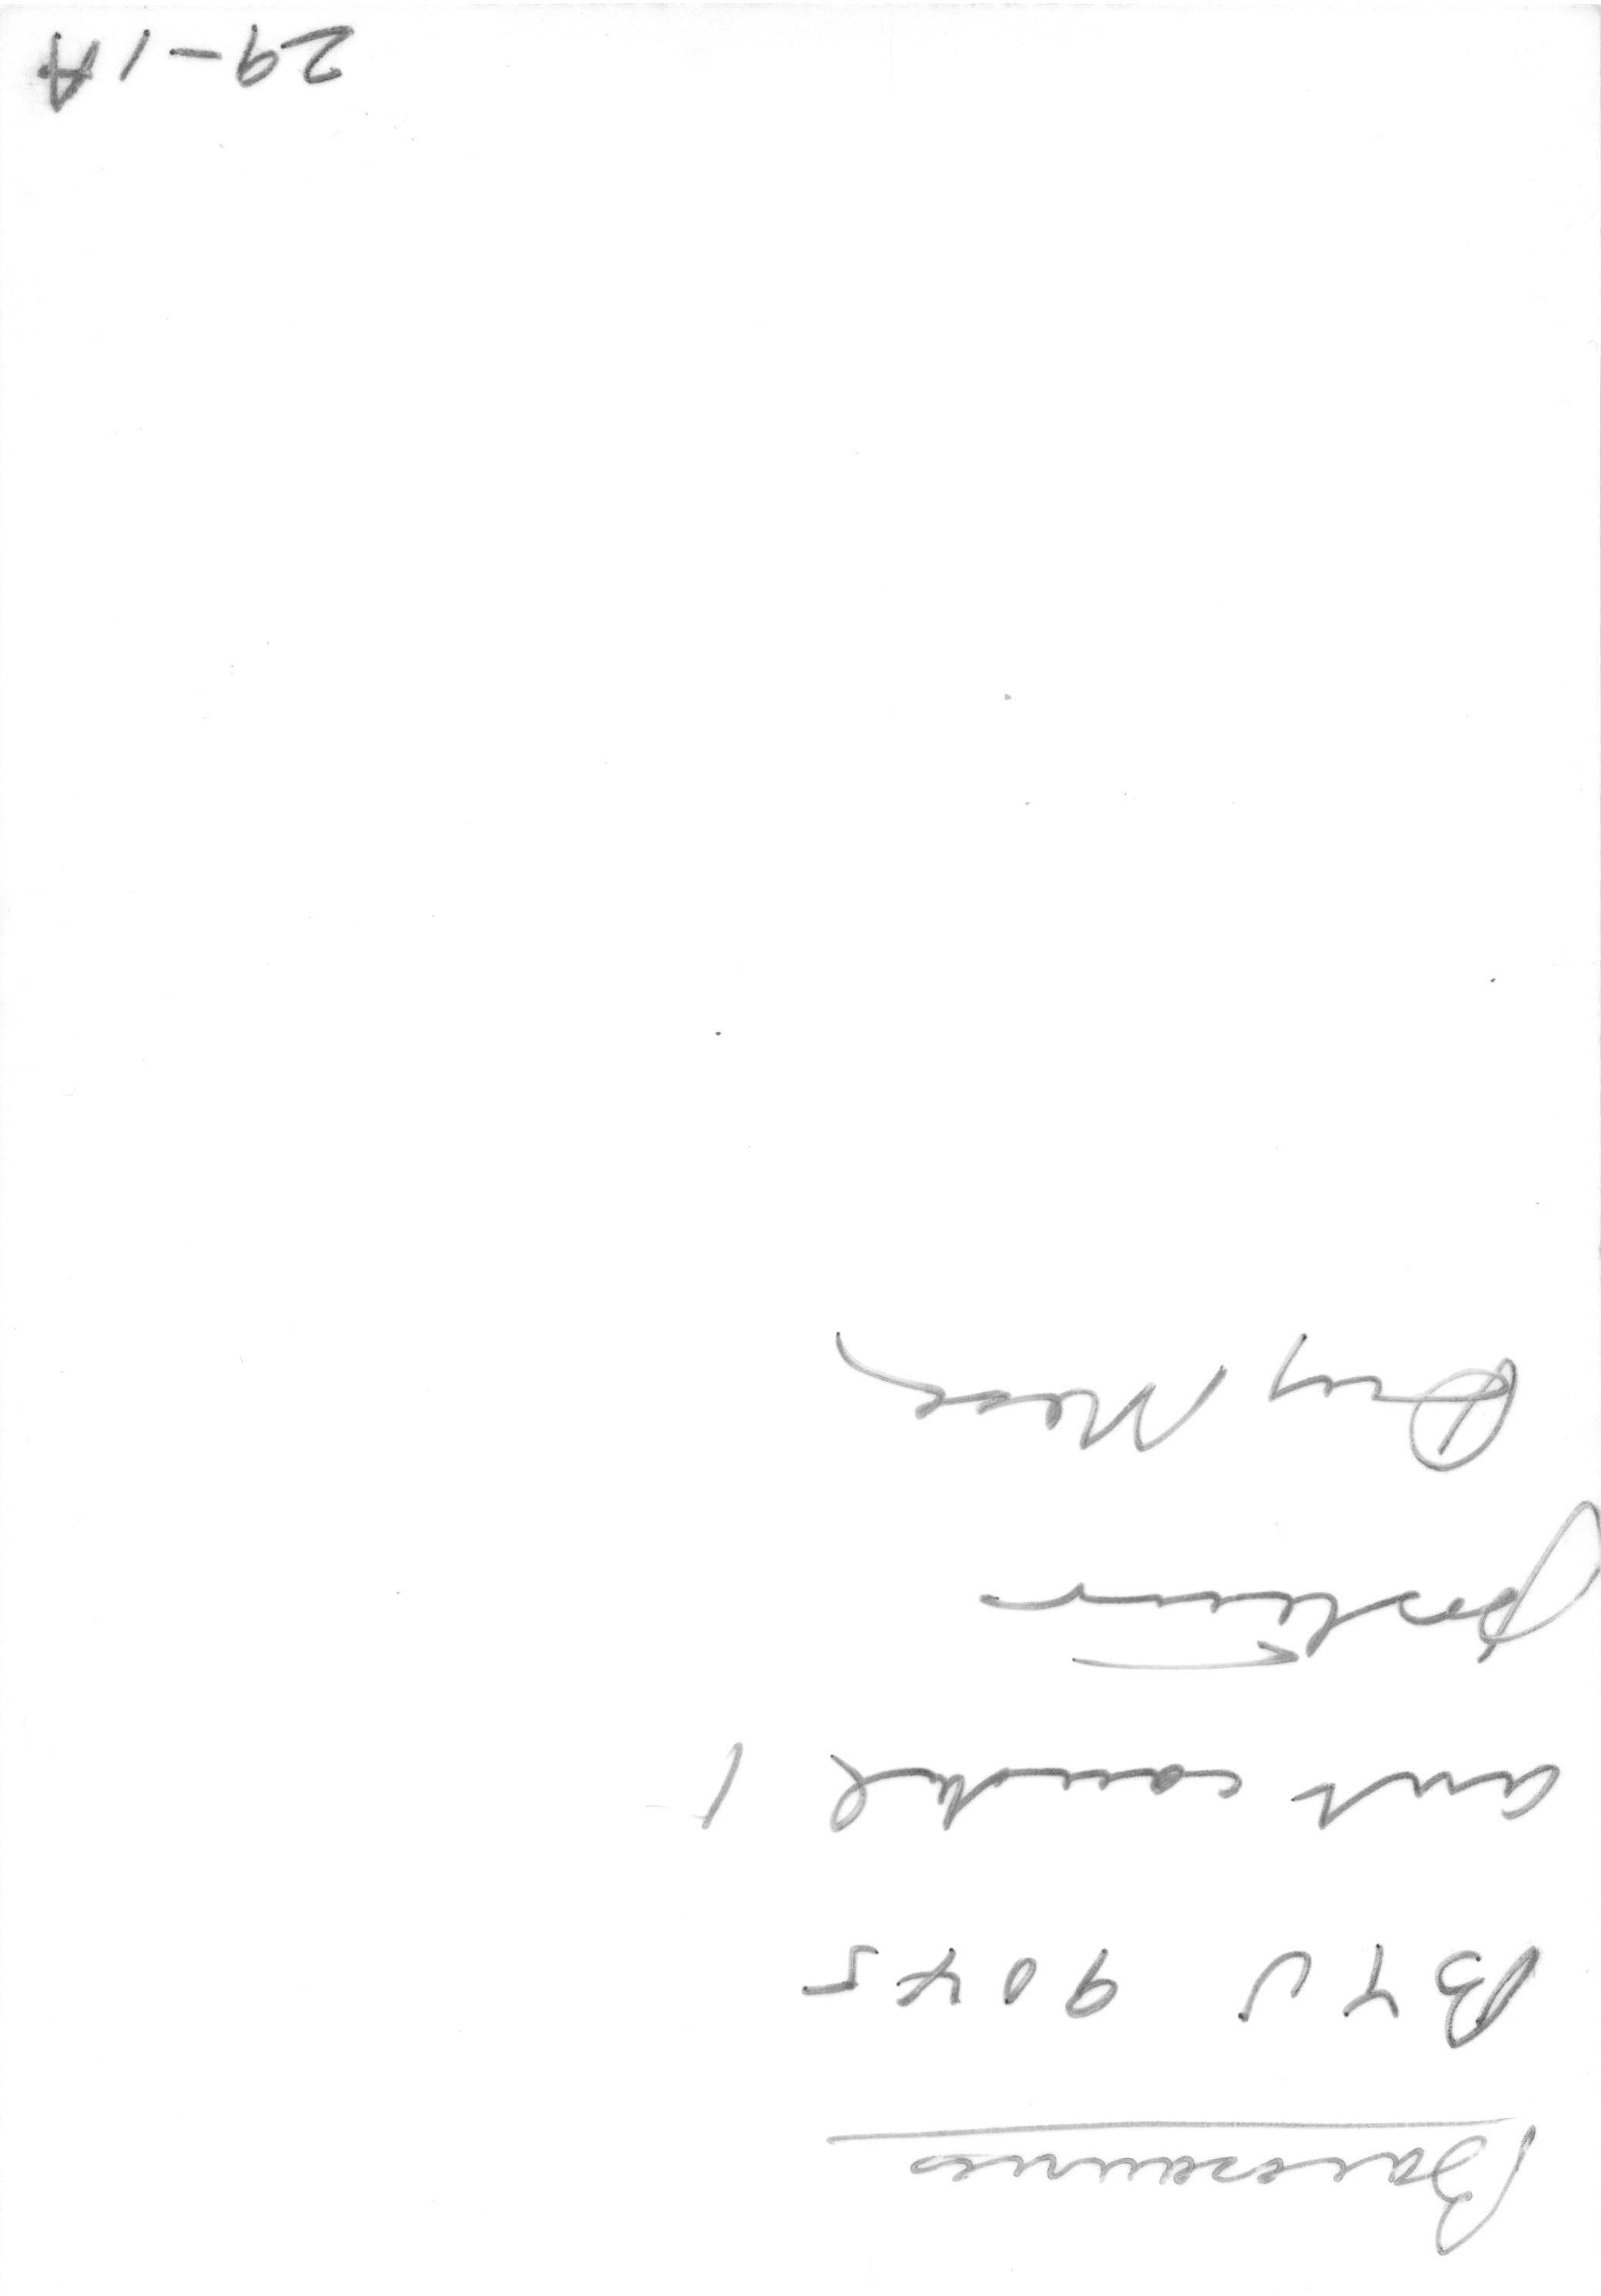 Barosaurus
BYU 9045
ant caudal 1
posterior
Dry Mesa
29-1A